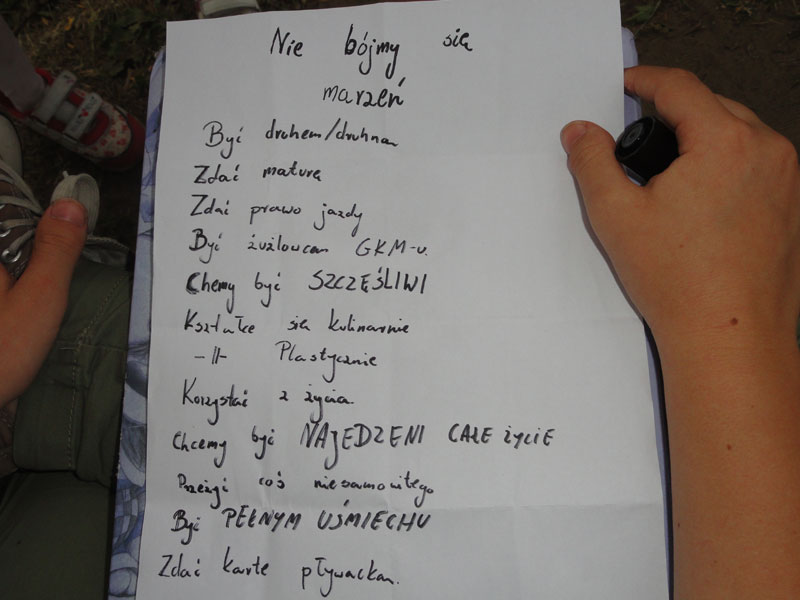 Nie bójmy się
marzeń
Być druhem/druhna
Zdać maturę
Zdać prawo jazdy
Być żużlowcem GKM-u.
Chemy być SZCZĘŚLIWI
Kształce się kulinarnie
-||- Plastycznie
Korzystać z życia.
Chcemy być NAJEDZENI CAŁE życie
Przeżyć coś niesamowitego
Być PEŁNYM UŚMIECHU
Zdać karte pływackan.